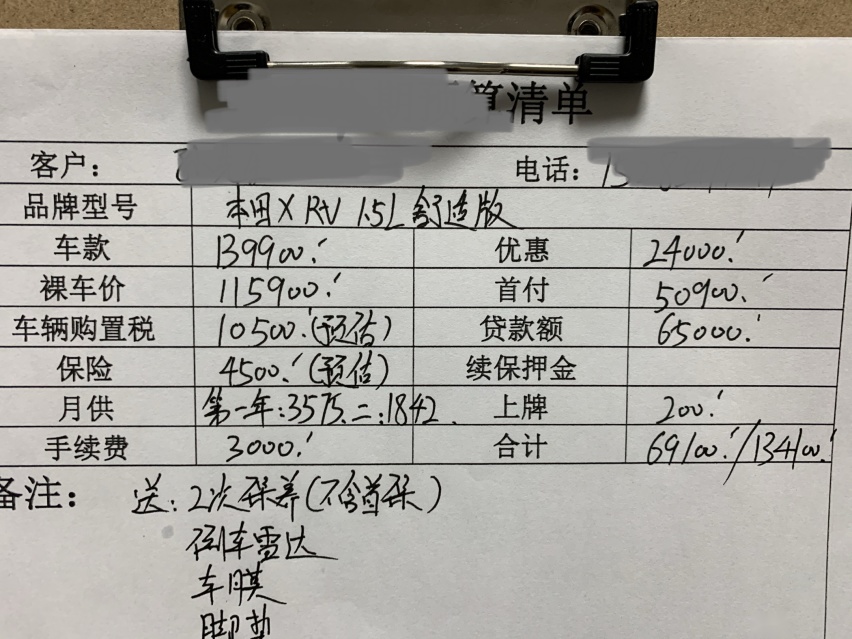 算清单
客户： 电话：
品牌型号 本田XRV 1.5L 舒适版
车款 139900.' 优惠 24000.'
裸车价 115900.' 首付 50900.'
车辆购置税 10500.'(预估) 贷款额 65000.'
保险 4500.'(预估) 续保押金
月供 第一年:3575、二:1842. 上牌 200.'
手续费 3000.' 合计 69100.'/134100.'
备注： 送:2次保养(不含首保)
倒车雷达
车膜
脚垫